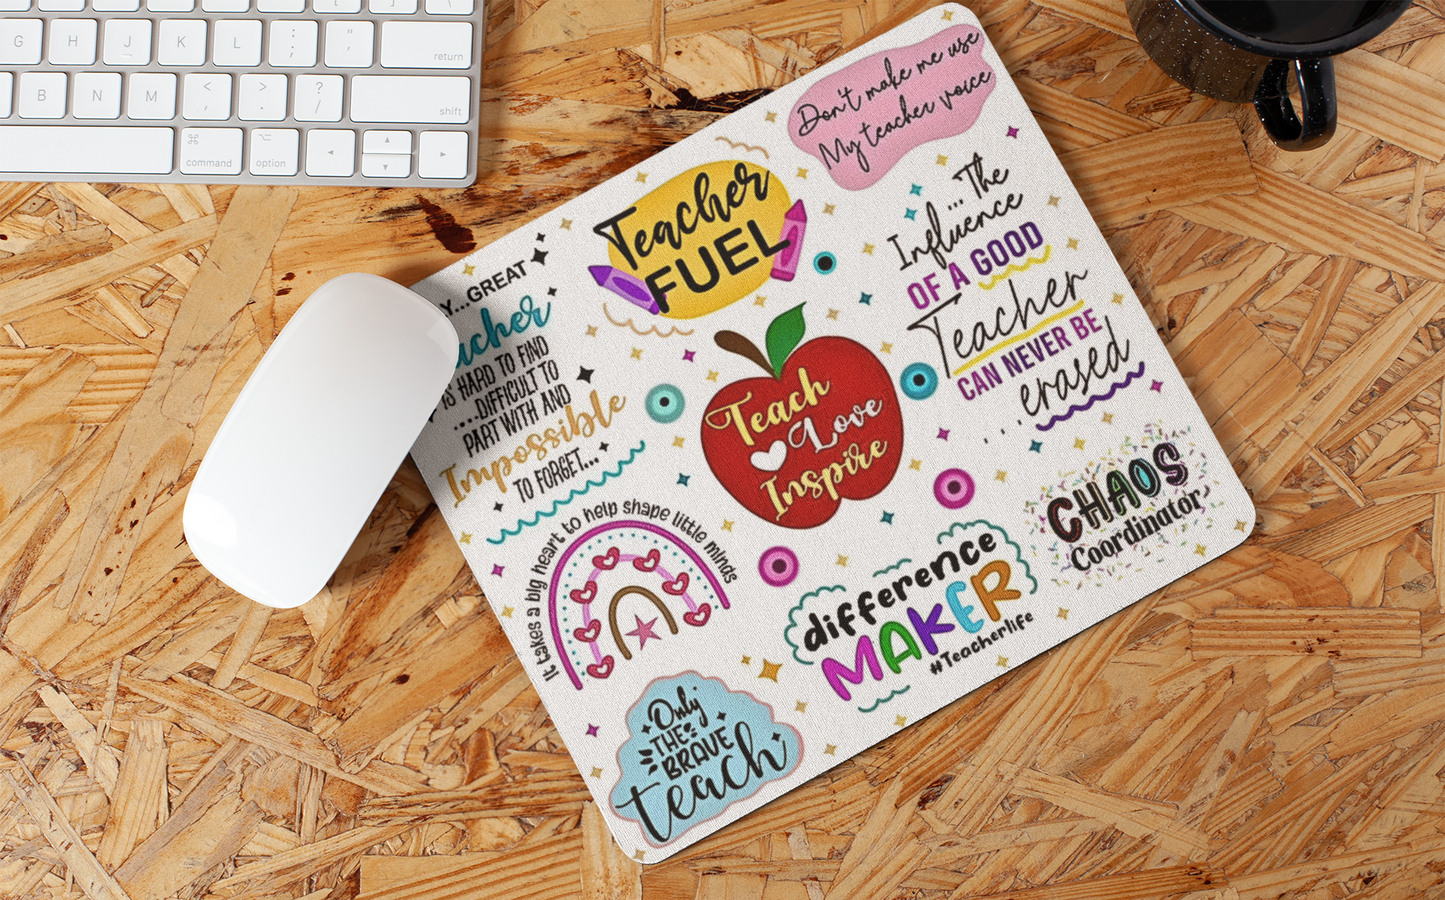 G H J K L : ; " ' return
B N M < , > . ? / shift
⌘ command ⌥ option ◂ ▴ ▾ ▸
Don't make me use
My teacher voice
Teacher
FUEL
...The
Influence
OF A GOOD
Teacher
CAN NEVER BE
...erased
...GREAT
IS HARD TO FIND
....DIFFICULT TO
PART WITH AND
Impossible
TO FORGET...
Teach
Love
Inspire
CHAOS
Coordinator
It takes a big heart to help shape little minds
difference
MAKER
#Teacherlife
Only
THE
BRAVE
teach